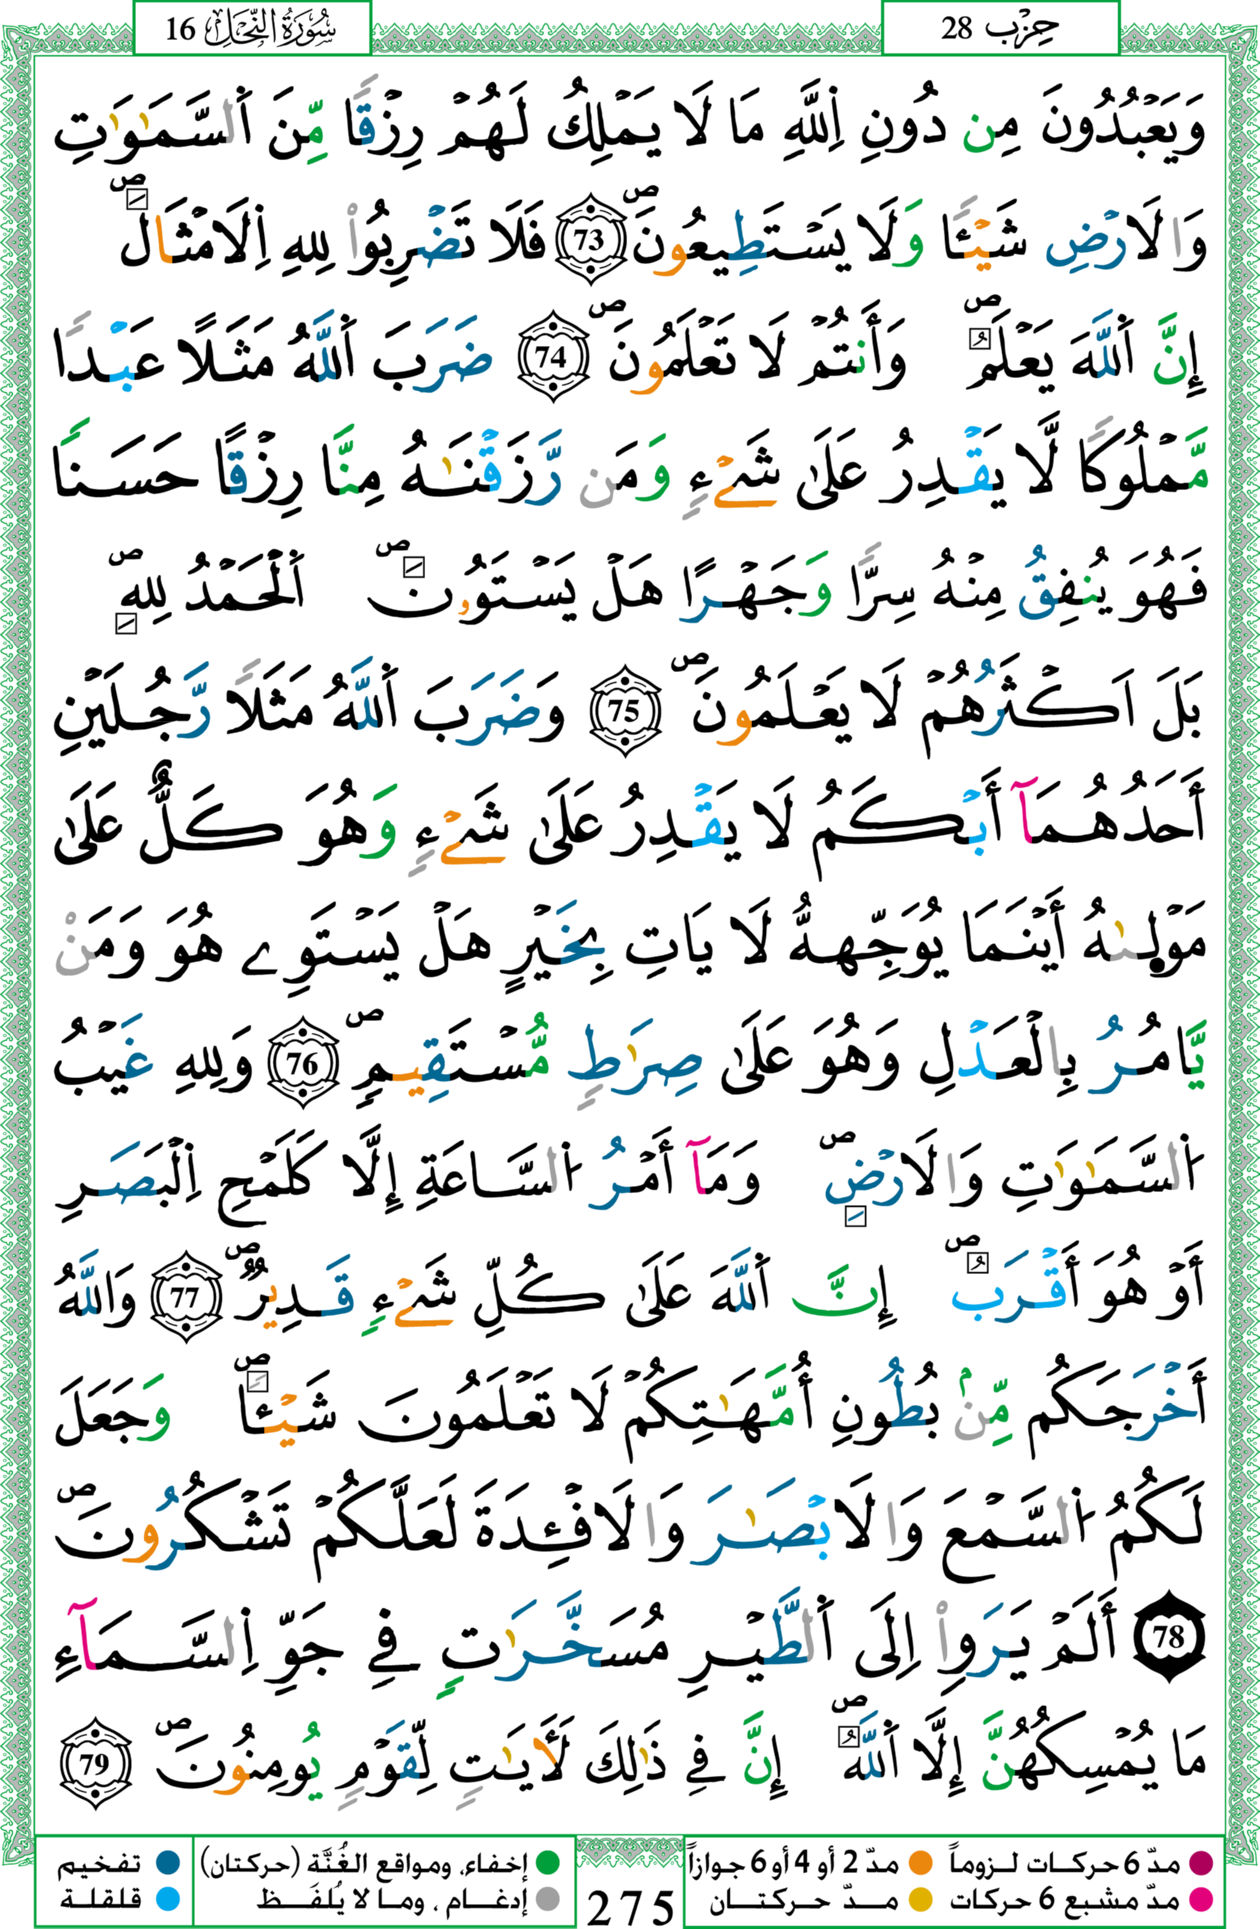 سُورَةُ النَّحْلِ 16
حِزْب 28
وَيَعْبُدُونَ مِن دُونِ اِ۬للَّهِ مَا لَا يَمْلِكُ لَهُمْ رِزْقاً مِّنَ اَ۬لسَّمَٰوَٰتِ
وَالَارْضِ شَيْـٔاً وَلَا يَسْتَطِيعُونَۖ 73 فَلَا تَضْرِبُواْ لِلهِ اِ۬لَامْثَالَۖ
إِنَّ اَ۬للَّهَ يَعْلَمُۖ وَأَنتُمْ لَا تَعْلَمُونَۖ 74 ضَرَبَ اَ۬للَّهُ مَثَلًا عَبْداً
مَّمْلُوكاً لَّا يَقْدِرُ عَلَىٰ شَےْءٍ وَمَن رَّزَقْنَٰهُ مِنَّا رِزْقاً حَسَناً
فَهُوَ يُنفِقُ مِنْهُ سِرّاً وَجَهْراً هَلْ يَسْتَوُۥنَۖ اَ۬لْحَمْدُ لِلهِۖ
بَلَ اَكْثَرُهُمْ لَا يَعْلَمُونَۖ 75 وَضَرَبَ اَ۬للَّهُ مَثَلاً رَّجُلَيْنِ
أَحَدُهُمَآ أَبْكَمُ لَا يَقْدِرُ عَلَىٰ شَےْءٍ وَهُوَ كَلٌّ عَلَىٰ
مَوْلٜىٰهُ أَيْنَمَا يُوَجِّههُّ لَا يَاتِ بِخَيْرٍ هَلْ يَسْتَوِے هُوَ وَمَنْ
يَّامُرُ بِالْعَدْلِ وَهُوَ عَلَىٰ صِرَٰطٍ مُّسْتَقِيمٍۖ 76 وَلِلهِ غَيْبُ
اُ۬لسَّمَٰوَٰتِ وَالَارْضِۖ وَمَآ أَمْرُ اُ۬لسَّاعَةِ إِلَّا كَلَمْحِ اِ۬لْبَصَرِ
أَوْ هُوَ أَقْرَبُۖ إِنَّ اَ۬للَّهَ عَلَىٰ كُلِّ شَےْءٍ قَدِيرٌۖ 77 وَاللَّهُ
أَخْرَجَكُم مِّنۢ بُطُونِ أُمَّهَٰتِكُمْ لَا تَعْلَمُونَ شَيْـٔاًۖ وَجَعَلَ
لَكُمُ اُ۬لسَّمْعَ وَالَابْصَٰرَ وَالَافْـِٕدَةَ لَعَلَّكُمْ تَشْكُرُونَۖ
78 أَلَمْ يَرَوِاْ اِلَى اَ۬لطَّيْرِ مُسَخَّرَٰتٍ فِے جَوِّ اِ۬لسَّمَآءِ
مَا يُمْسِكُهُنَّ إِلَّا اَ۬للَّهُۖ إِنَّ فِے ذَٰلِكَ لَأٓيَٰتٍ لِّقَوْمٍ يُومِنُونَۖ 79
مدّ 6 حركات لـزوماً مدّ 2 أو 4 أو 6 جوازاً
مدّ مشبع 6 حركات مـدّ حـركتــان
275
إخفاء، ومواقع الغُنَّة (حركتان) تفخيم
إدغـام ، ومـا لا يُلفَـظ قلقلة